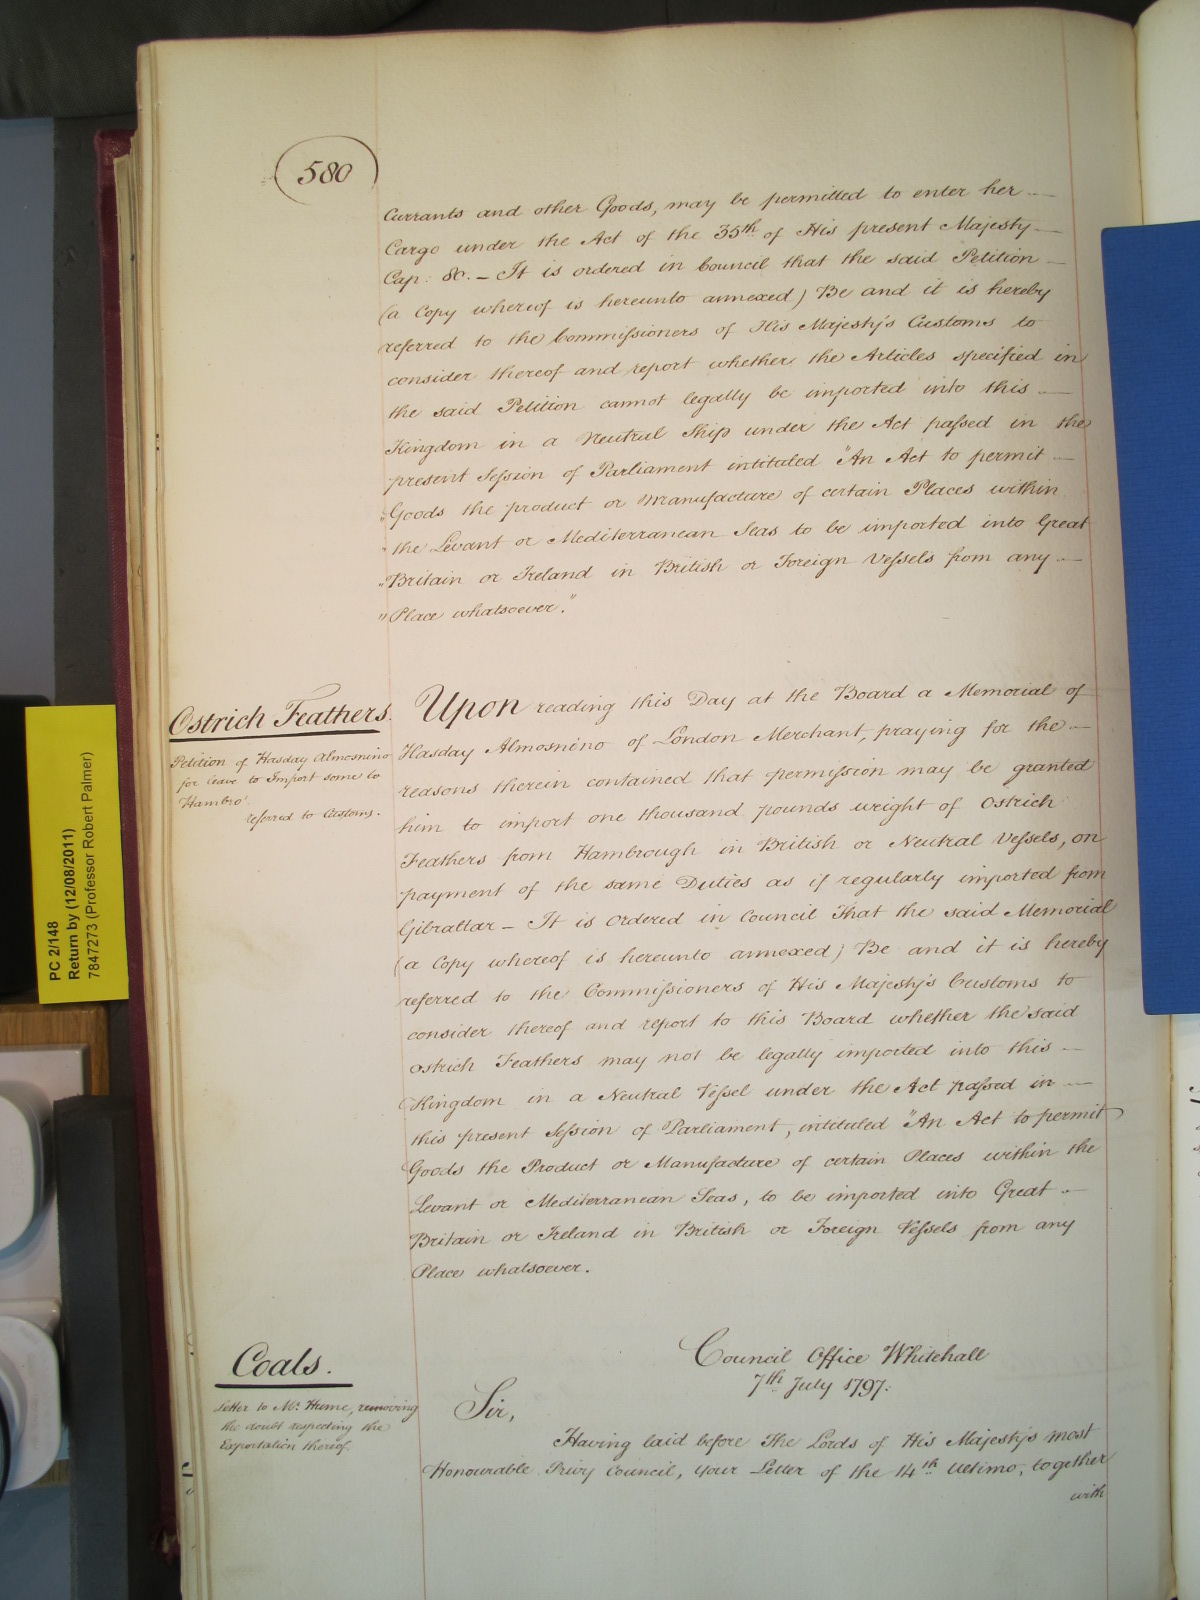 580
Currants and other Goods, may be permitted to enter her —
Cargo under the Act of the 35th of His present Majesty —
Cap: 80. — It is ordered in Council that the said Petition —
(a Copy whereof is hereunto annexed) Be and it is hereby
referred to the Commissioners of His Majesty's Customs to
consider thereof and report whether the Articles specified in
the said Petition cannot legally be imported into this —
Kingdom in a Neutral Ship under the Act passed in the
present Session of Parliament intituled "An Act to permit —
"Goods the product or Manufacture of certain Places within
"the Levant or Mediterranean Seas to be imported into Great
"Britain or Ireland in British or Foreign Vessels from any —
"Place whatsoever."
Ostrich Feathers.
Petition of Hasday Almosnino
for leave to Import some to
Hambro'.
referred to Customs.
Upon reading this Day at the Board a Memorial of
Hasday Almosnino of London Merchant, praying for the —
reasons therein contained that permission may be granted
him to import one thousand pounds weight of Ostrich
Feathers from Hambrough in British or Neutral Vessels, on
payment of the same Duties as if regularly imported from
Gibraltar — It is Ordered in Council that the said Memorial
(a Copy whereof is hereunto annexed) Be and it is hereby
referred to the Commissioners of His Majesty's Customs to
consider thereof and report to this Board whether the said
Ostrich Feathers may not be legally imported into this —
Kingdom in a Neutral Vessel under the Act passed in —
this present Session of Parliament, intituled "An Act to permit
Goods the Product or Manufacture of certain Places within the
Levant or Mediterranean Seas, to be imported into Great —
Britain or Ireland in British or Foreign Vessels from any
Place whatsoever.
Coals.
Letter to Mr. Hume, removing
the doubt respecting the
Exportation thereof.
Council Office Whitehall
7th July 1797.
Sir,
Having laid before The Lords of His Majesty's most
Honourable Privy Council, your Letter of the 14th Ultimo, together
with
PC 2/148
Return by (12/08/2011)
7847273 (Professor Robert Palmer)